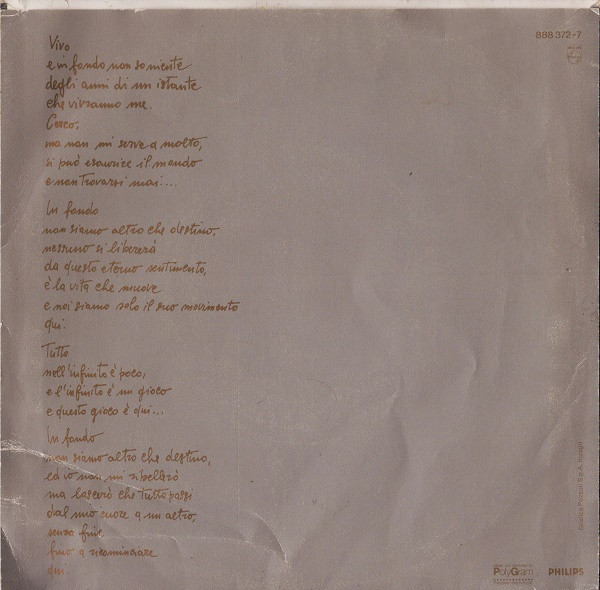 888 372-7
PHILIPS
Vivo
e in fondo non so niente
degli anni di un istante
che vivranno me.
Cerco,
ma non mi serve a molto,
si può esaurire il mondo
e non trovarsi mai...
In fondo
non siamo altro che destino,
nessuno si libererà
da questo eterno sentimento,
è la vita che muove
e noi siamo solo il suo movimento
qui.
Tutto
nell'infinito è poco,
e l'infinito è un gioco
e questo gioco è qui...
In fondo
non siamo altro che destino,
ed io non mi ribellerò
ma lascerò che tutto passi
dal mio cuore a un altro,
senza fine
fino a ricominciare
qui.
Grafica Pozzoli S.p.A. Inzago
PolyGram
PHILIPS